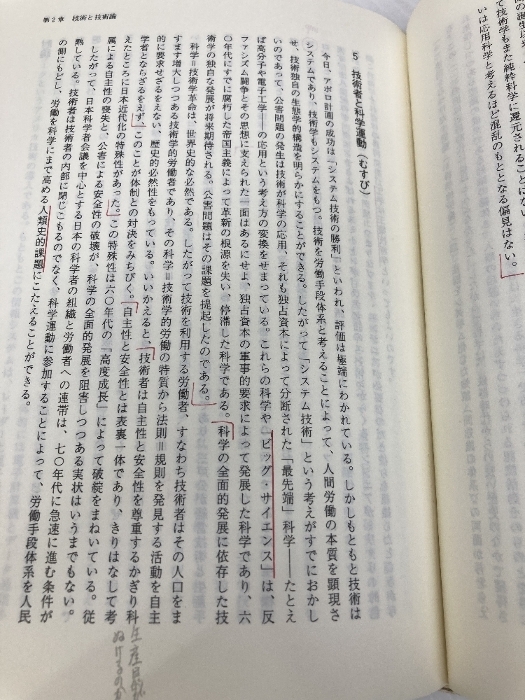 て技術もまた純粋科学に還元されることにな
いは応用科学と考えるほど混乱のもととなる偏見はない。
第2章 技術と技術論
5 技術者と科学運動(むすび)
今日、アポロ計画の成功は「システム技術の勝利」といわれ、評価は極端にわかれている。しかしもともと技術は
システムであり、技術学もシステムをもつ。技術を労働手段体系と考えることによって、人間労働の本質を顕現さ
せ、技術独自の生態学的構造を明らかにすることができる。したがって「システム技術」という考えがすでにおかし
いのであって、公害問題の発生は技術が科学の応用、それも独占資本によって分断された「最先端」科学――たとえ
ば高分子や電子工学――の応用という考え方の変換をせまっている。これらの科学や「ビッグ・サイエンス」は、反
ファシズム闘争とその思想に支えられた一面はあるにせよ、独占資本の軍事的要求によって発展した科学であり、六
〇年代にすでに腐朽した帝国主義によって革新の根源を失い、停滞した科学である。科学の全面的発展に依存した技
術学の独自な発展が将来期待される。公害問題はその課題を提起したのである。
科学=技術学革命は、世界史的な必然である。したがって技術を利用する労働者、すなわち技術者はその人口をま
すます増大しつつある技術学的労働者であり、その科学=技術学的労働の特質から法則=規則を発見する活動を自主
的に要求せざるをえない、歴史的必然性をもっている。いいかえると、技術者は自主性と安全性を尊重するかぎり科
学者とならざるをえず、このことが体制との対決をみちびく。「自主性と安全性とは表裏一体であり、きりはなして考
えたところに日本近代化の特殊性があった。この特殊性は六〇年代の「高度成長」によって破綻をまねいている。従
属による自主性の喪失と、公害による安全性の破壊が、科学の全面的発展を阻害しつつある実状はいうまでもない。
したがって、日本科学者会議を中心とする日本の科学者の組織と労働者への連帯は、七〇年代に急速に進む条件が
熟している。技術者は技術者の内部に閉じこもるのでなく、科学運動に参加することによって、労働手段体系を人民
の側にもどし、労働を科学にまで高める人類史的課題にこたえることができる。